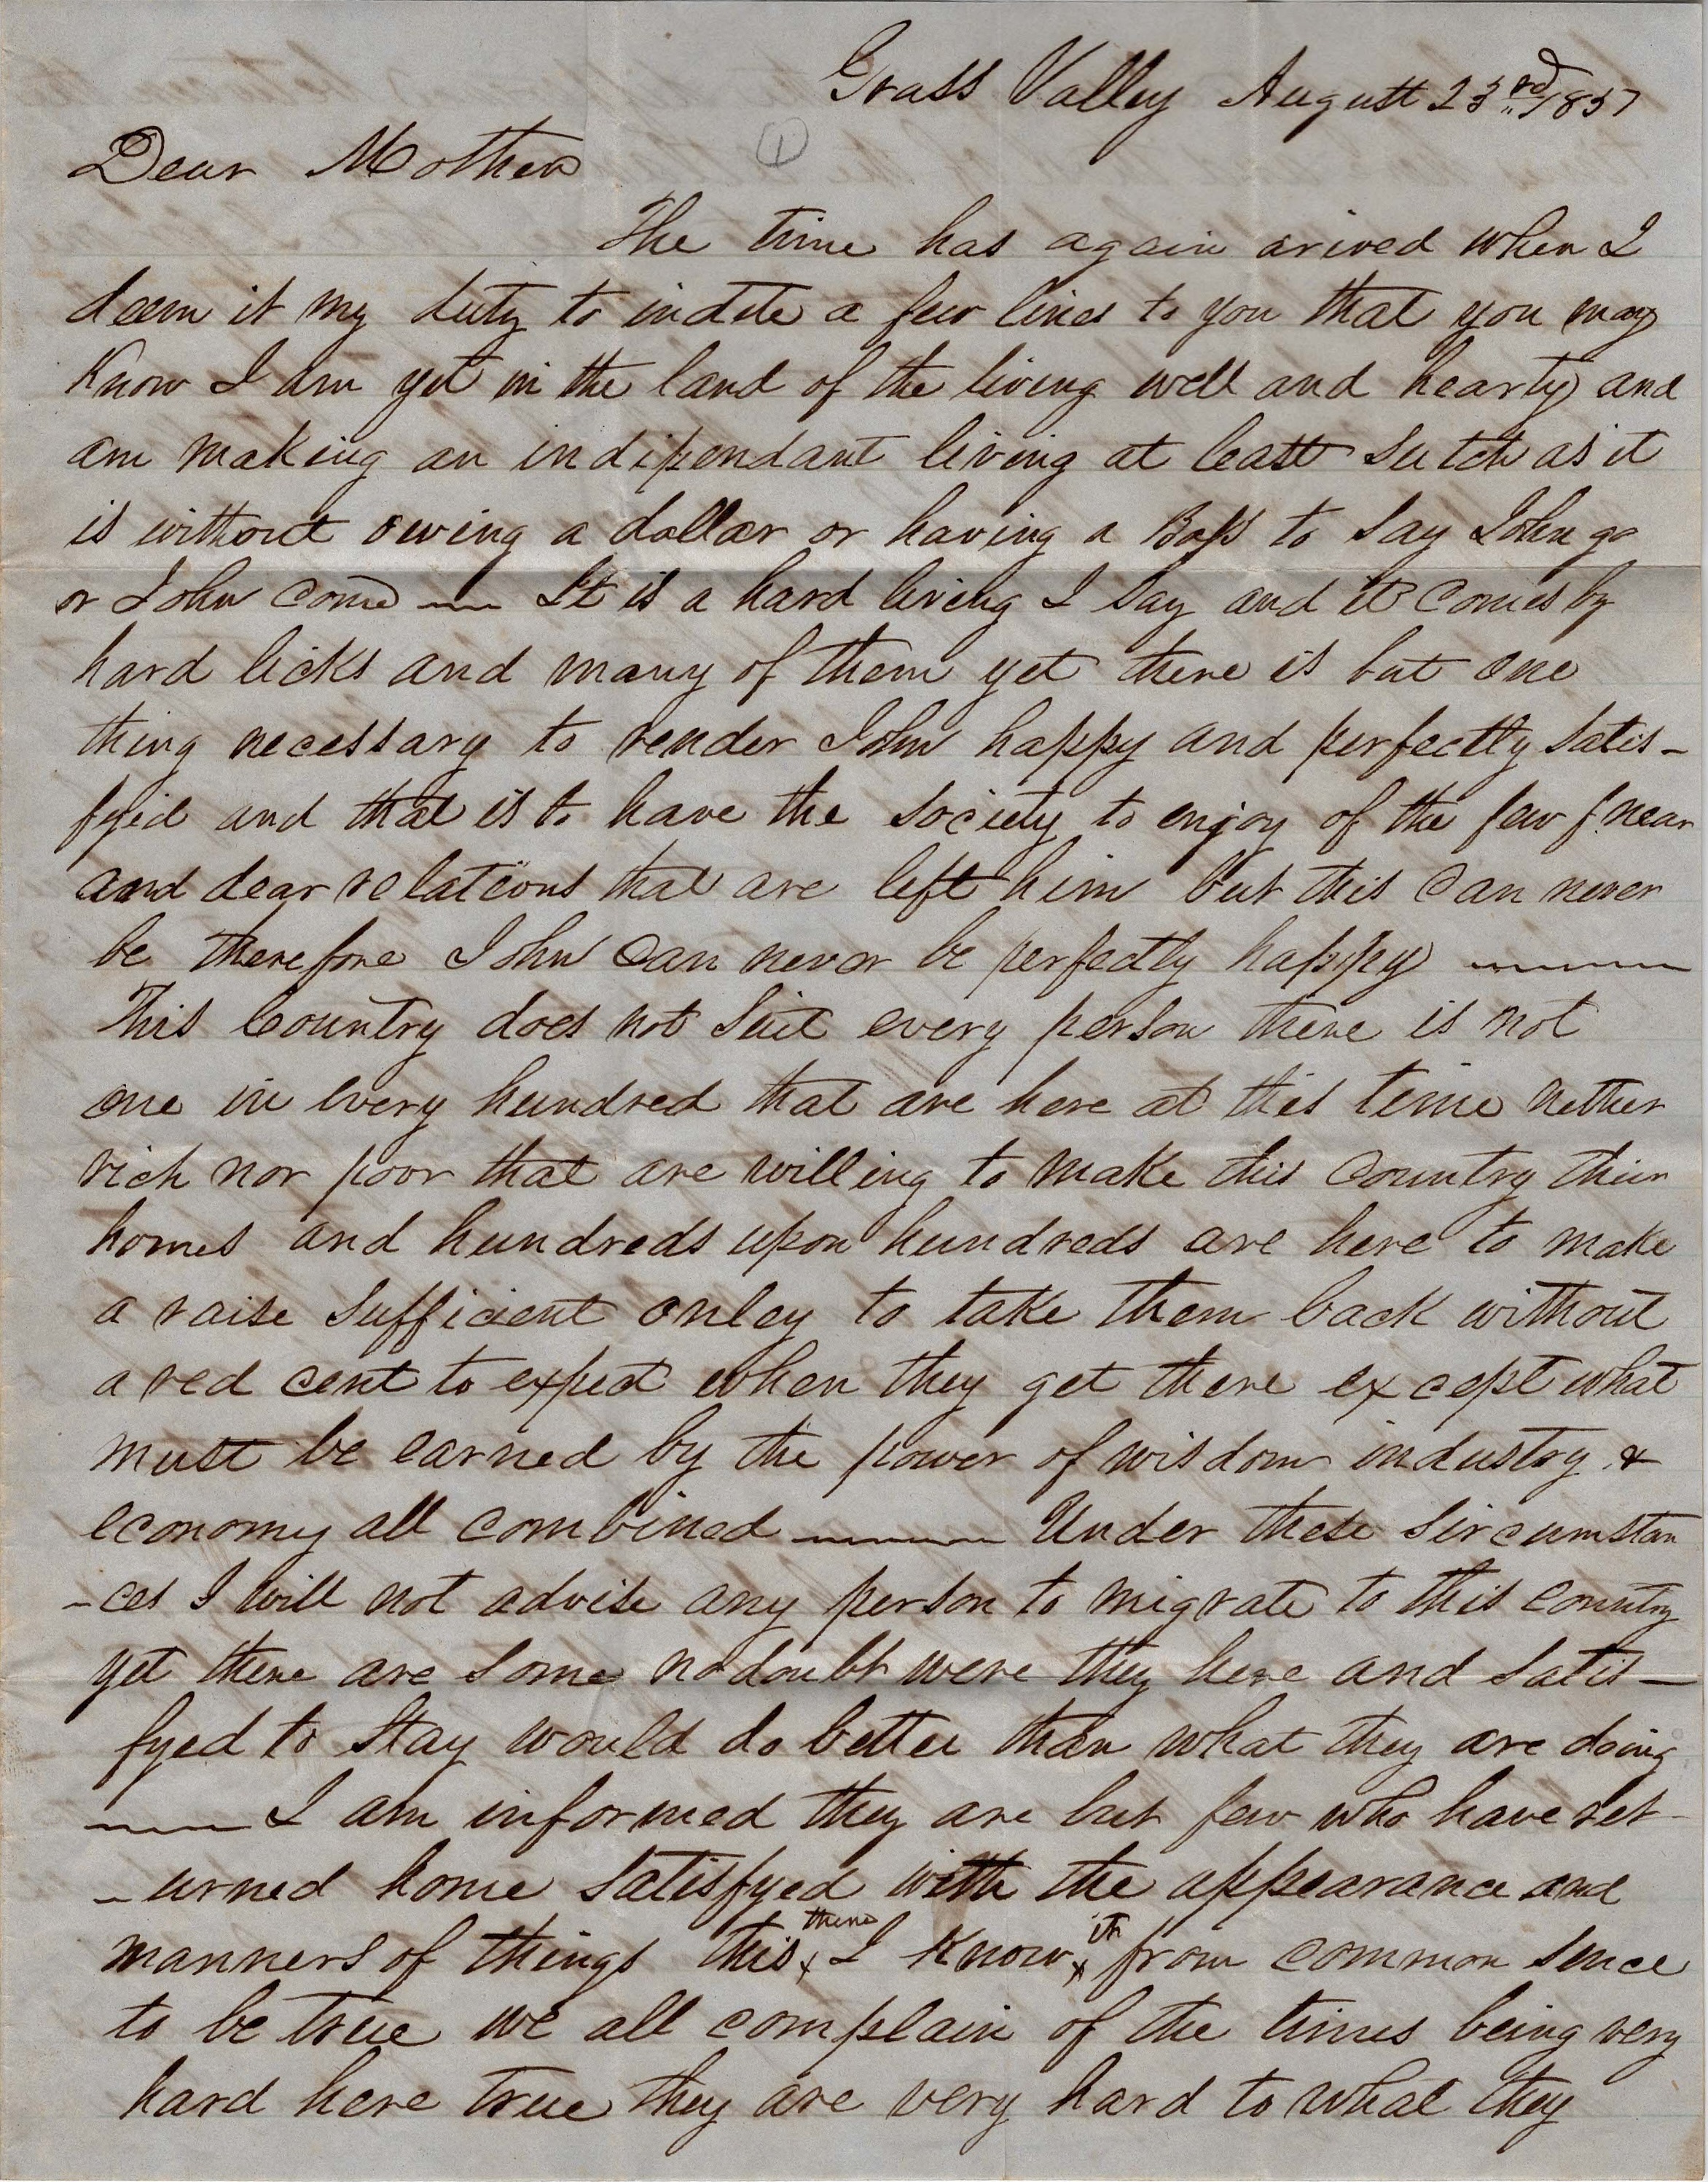 Grass Valley August 23rd 1857
①
Dear Mother
The time has again arived when I
deem it my duty to indite a few lines to you that you may
Know I am yet in the land of the living well and hearty and
am making an indipendant living at least sutch as it
is without owing a dollar or having a Boss to say John go
or John come — It is a hard living I say and it comes by
hard licks and many of them yet there is but one
thing necessary to render John happy and perfectly satis-
fyed and that is to have the society to enjoy of the few near
and dear relations that are left him but this can never
be therefore John can never be perfectly happy —
This Country does not suit every person there is not
one in every hundred that are here at this time nether
rich nor poor that are willing to make this Country their
homes and hundreds upon hundreds are here to make
a raise sufficient onley to take them back without
a red cent to expect when they get there except what
must be earned by the power of wisdom industry &
economy all combined — Under these sircumstan
-ces I will not advise any person to migrate to this country
yet there are some no doubt were they here and satis-
fyed to stay would do better than what they are doing
— I am informed they are but few who have ret-
-urned home satisfyed with the appearance and
manners of things there this I know it from common sence
to be true we all complain of the times being very
hard here true they are very hard to what they